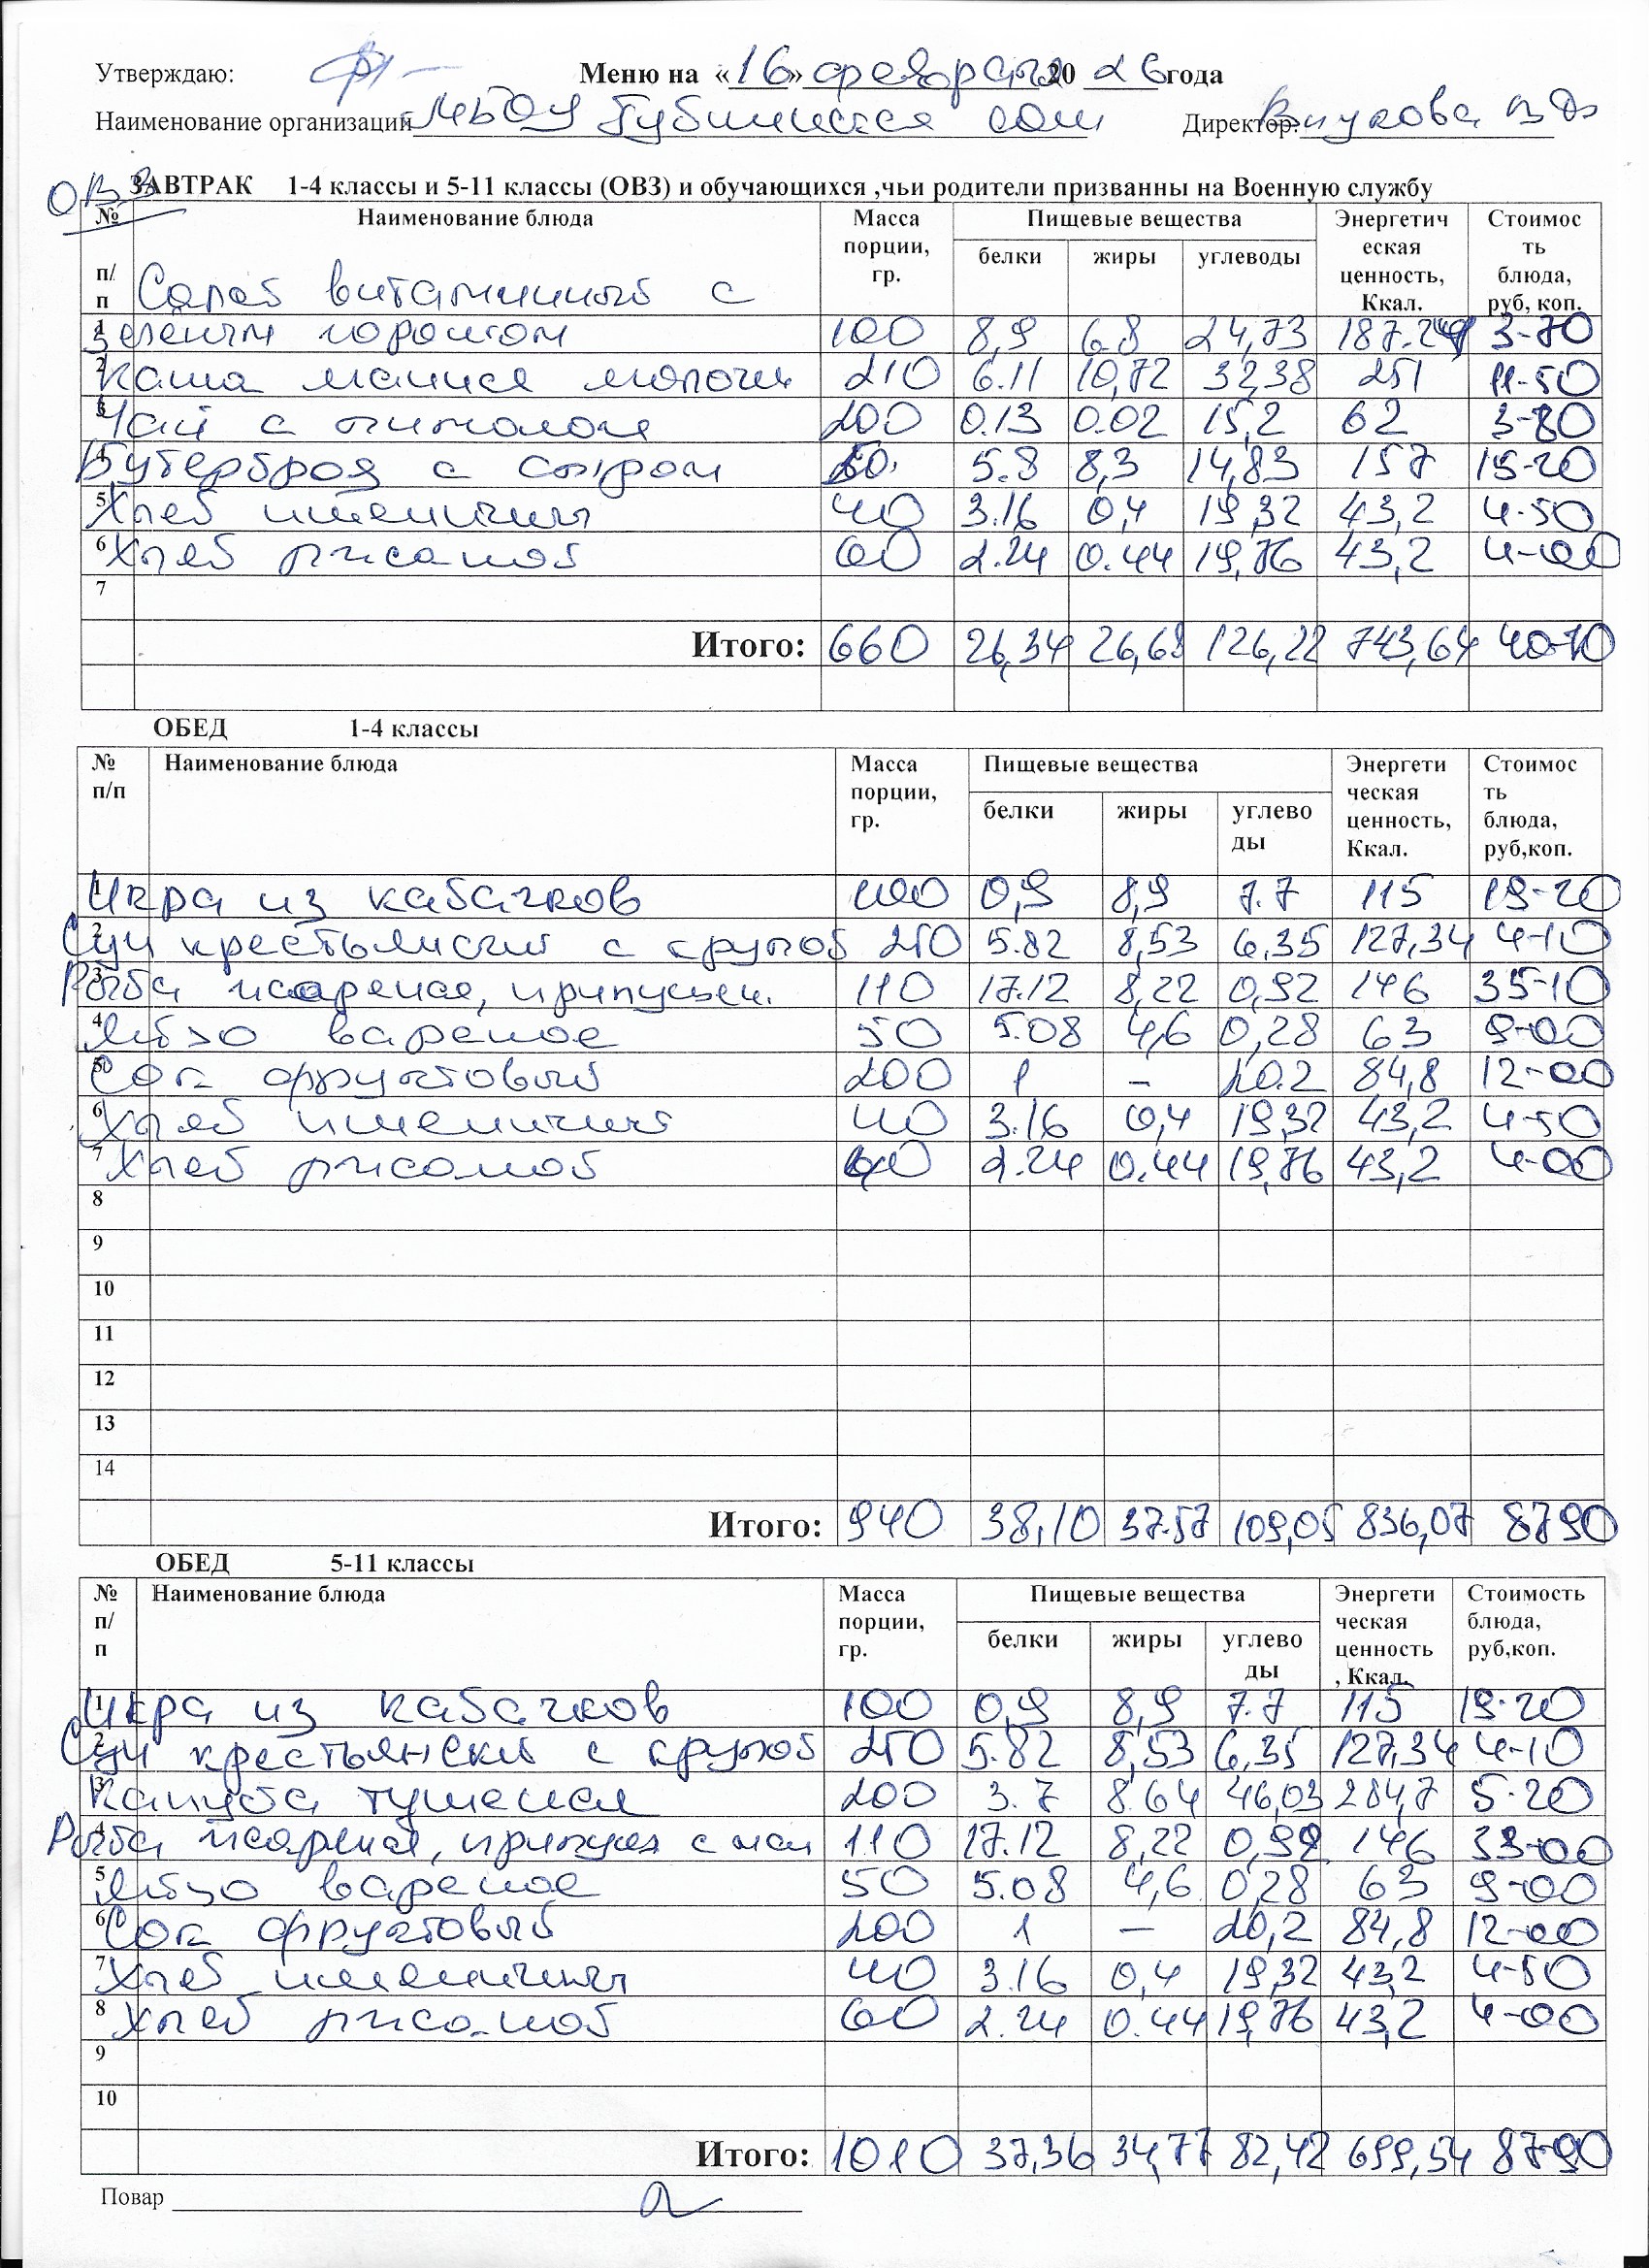 Утверждаю: Меню на «16» февраля 2026 года
Наименование организации МБОУ Губинская сош Директор: Внукова
ОВЗ
ЗАВТРАК 1-4 классы и 5-11 классы (ОВЗ) и обучающихся ,чьи родители призванны на Военную службу
№ п/п Наименование блюда Масса порции, гр. Пищевые вещества белки жиры углеводы Энергетическая ценность, Ккал. Стоимость блюда, руб, коп.
Салат витаминный с
1 зеленым горошком 100 8,9 6.8 24,73 187.24 3-70
2 Каша манная молочн 210 6.11 10,72 32,38 251 11-50
3 Чай с лимоном 200 0.13 0.02 15,2 62 3-80
4 Бутерброд с сыром 50 5.8 8,3 14,83 157 15-20
5 Хлеб пшеничный 40 3.16 0,4 19,32 43,2 4-50
6 Хлеб ржаной 60 2.24 0.44 19,76 43,2 4-00
7
Итого: 660 26,34 26,68 126,22 743,64 40-70
ОБЕД 1-4 классы
№ п/п Наименование блюда Масса порции, гр. Пищевые вещества белки жиры углеводы Энергетическая ценность, Ккал. Стоимость блюда, руб,коп.
1 Икра из кабачков 100 0,9 8,9 7.7 115 19-20
2 Суп крестьянский с крупой 250 5.82 8,53 6,35 127,34 4-10
3 Рыба жареная, припущен. 110 17.12 8,22 0,92 146 35-10
4 Яйцо вареное 50 5.08 4,6 0,28 63 9-00
5 Сок фруктовый 200 1 – 20.2 84,8 12-00
6 Хлеб пшеничный 40 3.16 0,4 19,32 43,2 4-50
7 Хлеб ржаной 60 2.24 0.44 19,76 43,2 4-00
8
9
10
11
12
13
14
Итого: 940 38,10 37.57 109,05 836,07 87-90
ОБЕД 5-11 классы
№ п/п Наименование блюда Масса порции, гр. Пищевые вещества белки жиры углеводы Энергетическая ценность, Ккал. Стоимость блюда, руб,коп.
1 Икра из кабачков 100 0,9 8,9 7.7 115 19-20
2 Суп крестьянский с крупой 250 5.82 8,53 6,35 127,34 4-10
3 Капуста тушеная 200 3.7 8.64 46,03 284,7 5-20
4 Рыба жареная, припущ с мас 110 17.12 8,22 0,92 146 33-00
5 Яйцо вареное 50 5.08 4,6 0,28 63 9-00
6 Сок фруктовый 200 1 – 20,2 84,8 12-00
7 Хлеб пшеничный 40 3.16 0,4 19,32 43,2 4-50
8 Хлеб ржаной 60 2.24 0.44 19,76 43,2 4-00
9
10
Итого: 1010 37,36 34,77 82,42 699,54 87-90
Повар